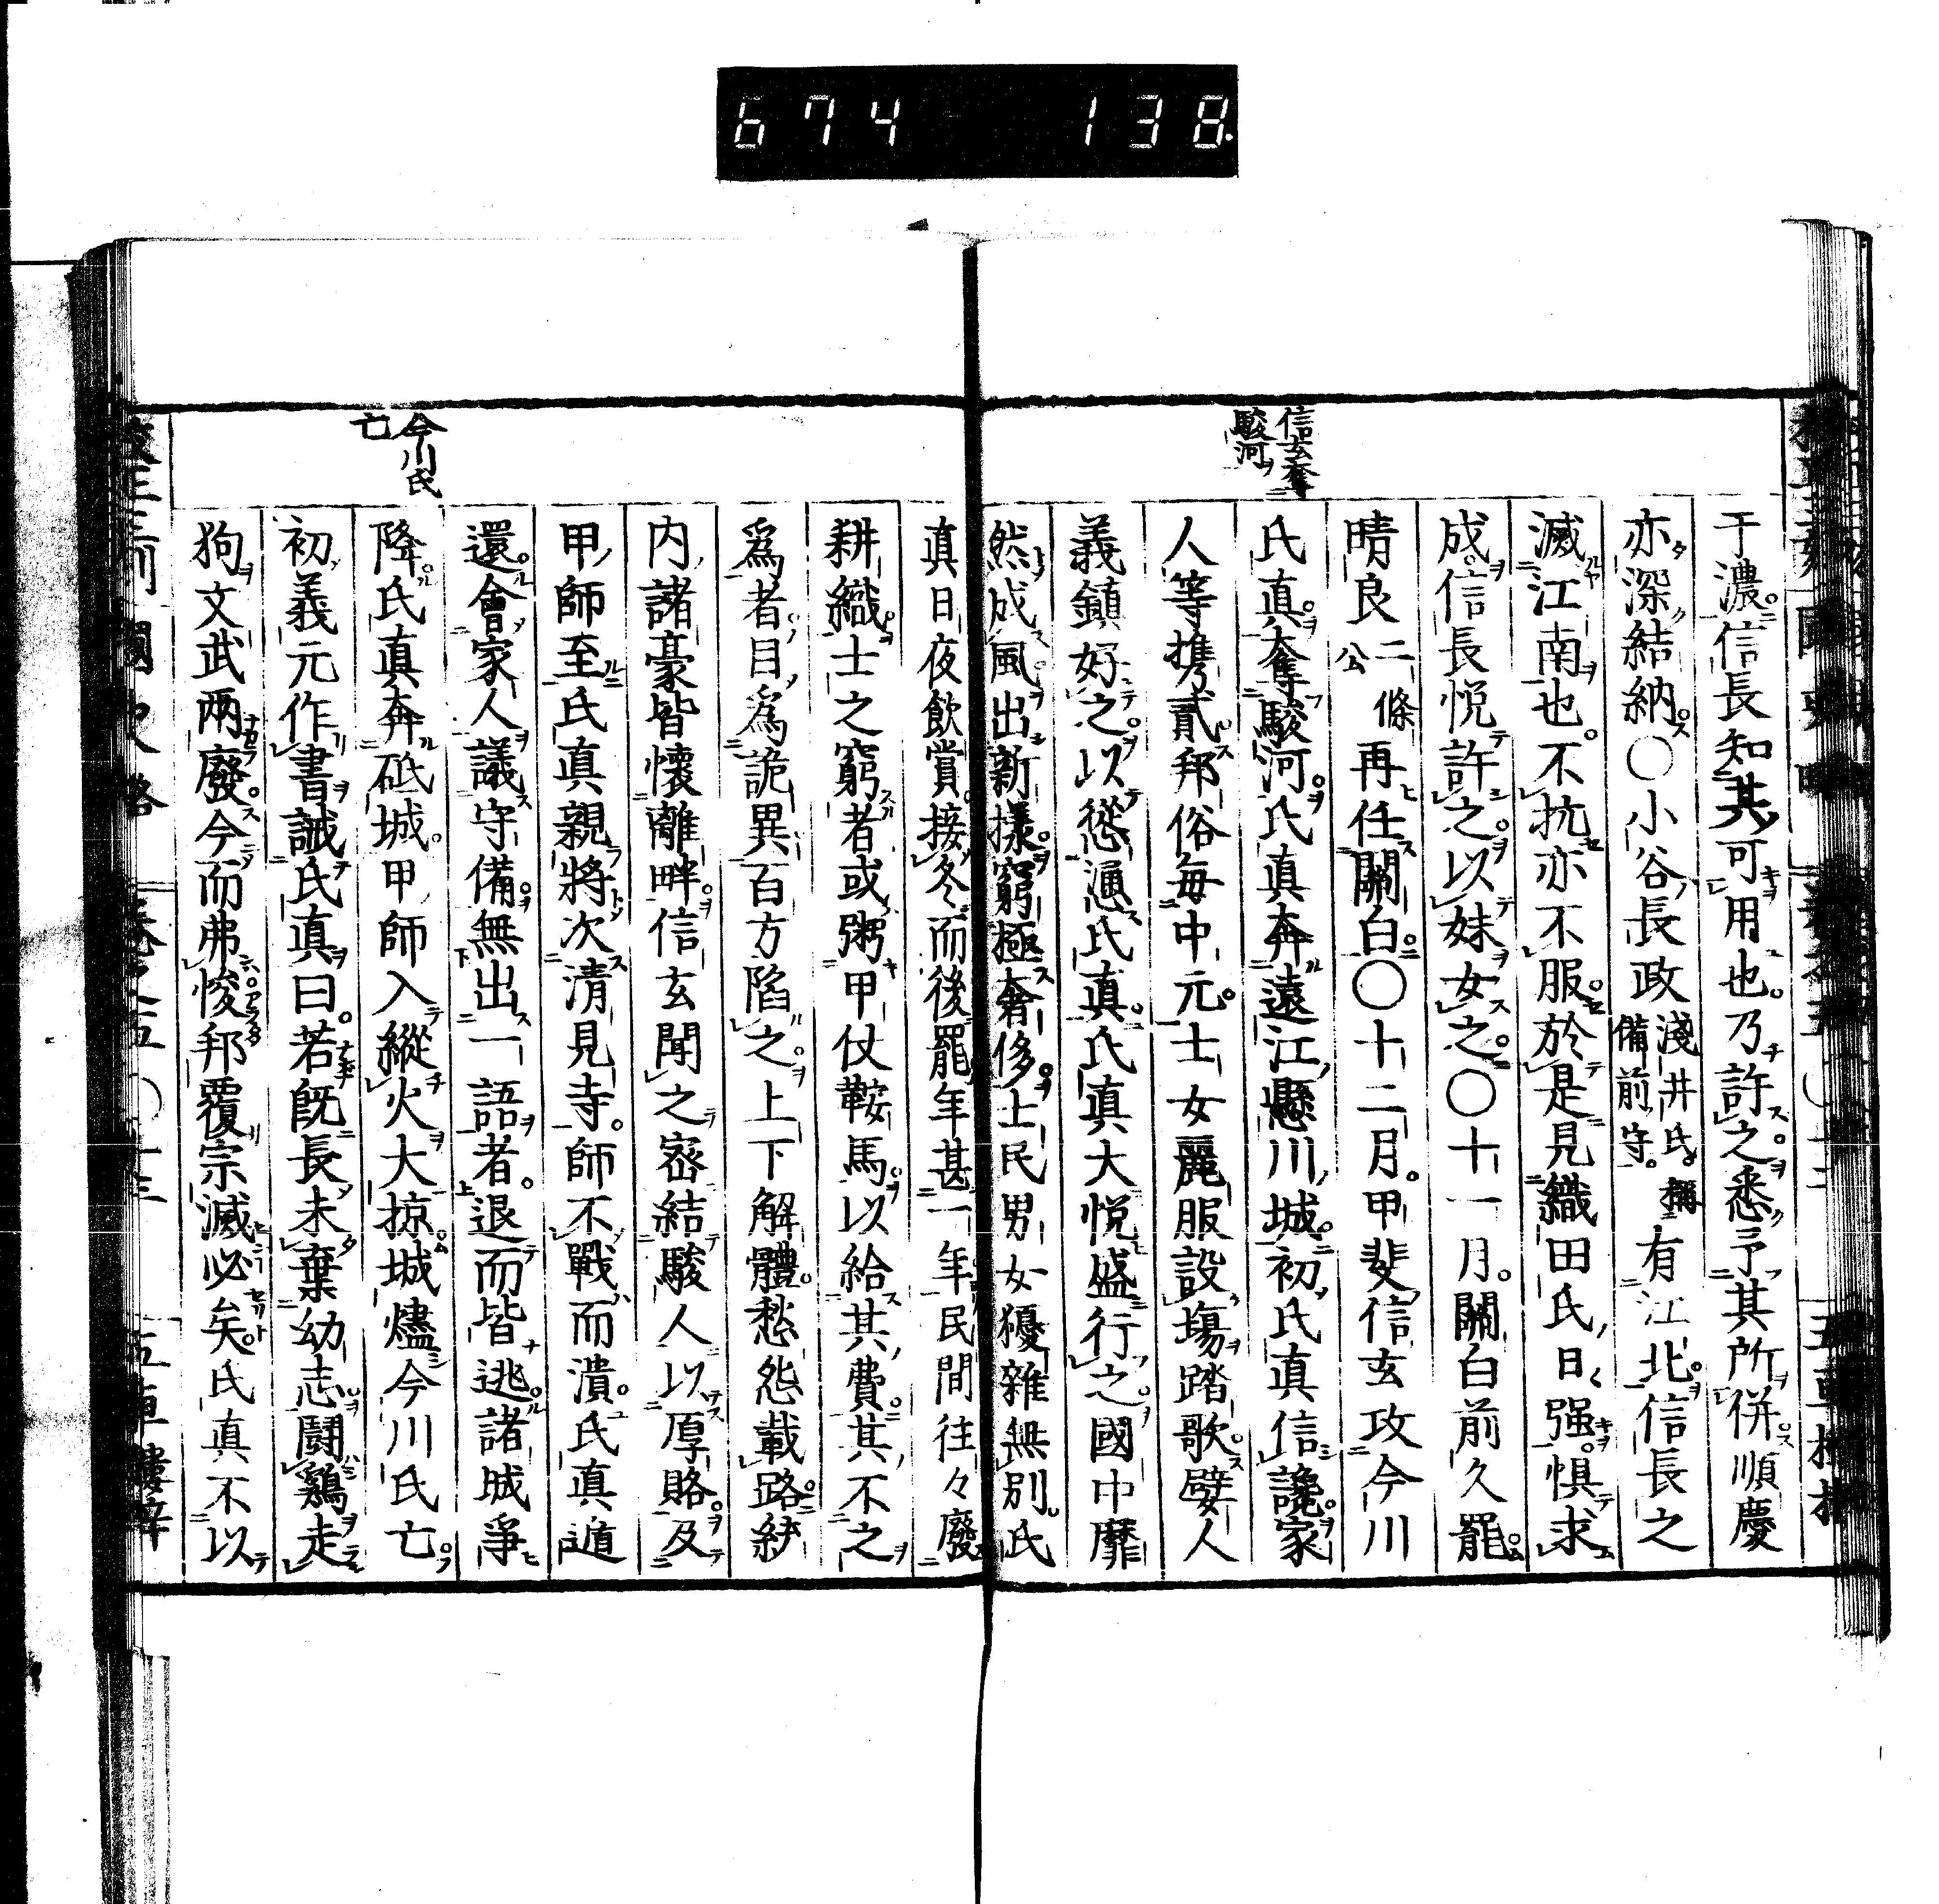 674 138
信玄奪
駿河
于濃信長知其可用也乃許之悉予其所併順慶
亦深結納〇小谷長政淺井氏稱備前守有江北信長之
滅江南也不抗亦不服於是見織田氏日强惧求
成信長悦許之以妹女之〇十一月關白前久罷
晴良二條公再任關白〇十二月甲斐信玄攻今川
氏真奪駿河氏真奔遠江懸川城初氏真信讒家
人等携貳邦俗每中元士女麗服設場踏歌嬖人
義鎮好之以慫慂氏真氏真大悦盛行之國中靡
然成風出新樣窮極奢侈士民男女獶雜無別氏
今川氏
亡
真日夜飲賞接冬而後罷年甚一年民間往々廢
耕織士之窮者或粥甲仗鞍馬以給其費其不之
爲者目爲詭異百方陷之上下解體愁怨載路封
内諸豪皆懷離畔信玄聞之密結駿人以厚賂及
甲師至氏真親將次清見寺師不戰而潰氏真遁
還會家人議守備無出一語者退而皆逃諸城爭
降氏真奔砥城甲師入縱火大掠城燼今川氏亡
初義元作書誡氏真曰若既長未棄幼志鬪鷄走
狗文武兩廢今而弗悛邦覆宗滅必矣氏真不以